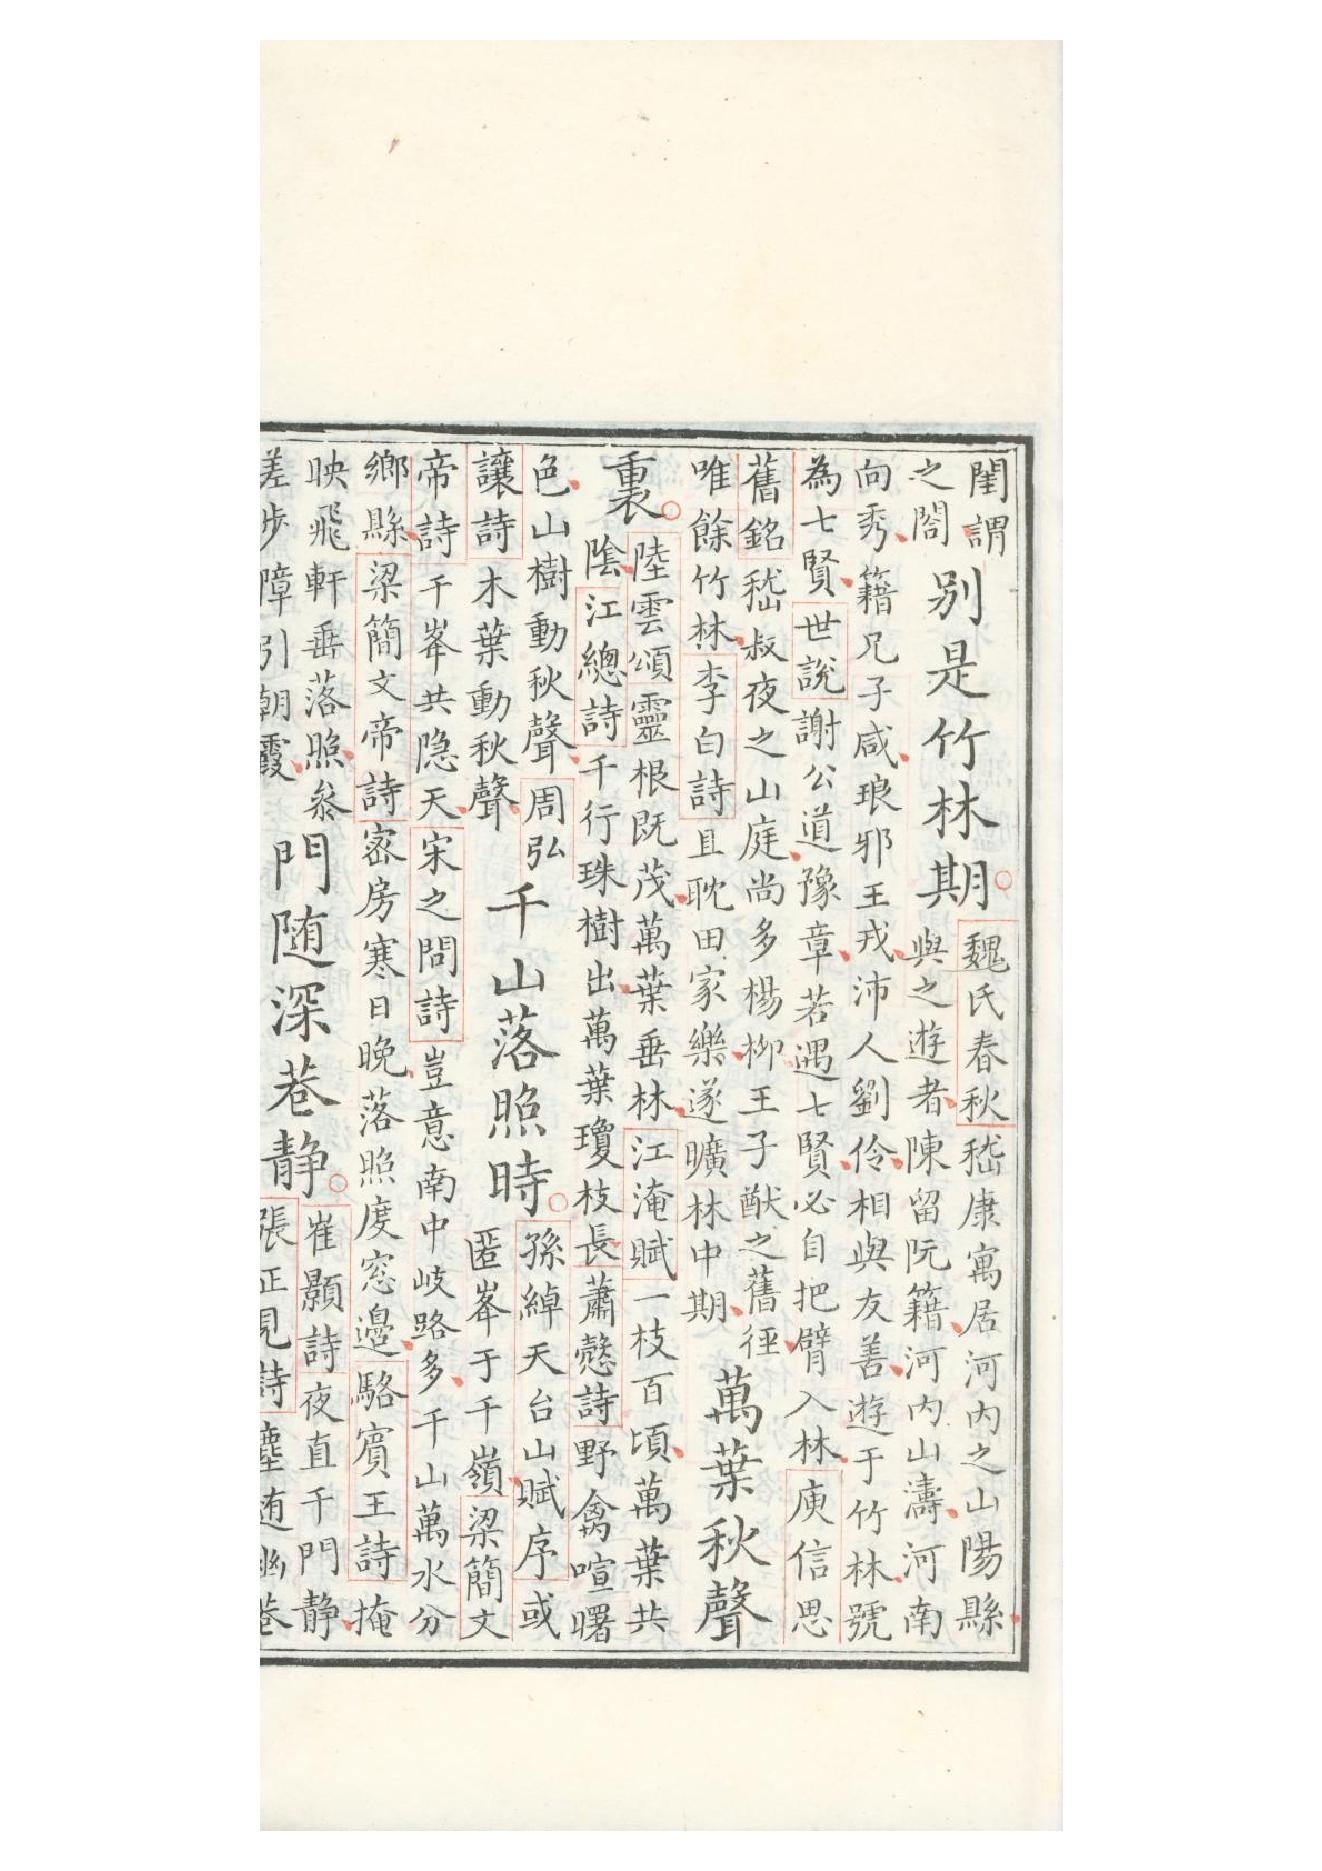 閨謂
之閤
別是竹林期
魏氏春秋嵇康寓居河内之山陽縣
與之遊者陳留阮籍河内山濤河南
向秀籍兄子咸琅邪王戎沛人劉伶相與友善遊于竹林號
為七賢世說謝公道豫章若遇七賢必自把臂入林庾信思
舊銘嵇叔夜之山庭尚多楊柳王子猷之舊徑
唯餘竹林李白詩且耽田家樂遂曠林中期
萬葉秋聲
裏
陸雲頌靈根既茂萬葉垂林江淹賦一枝百頃萬葉共
陰江總詩千行珠樹出萬葉瓊枝長蕭慤詩野禽喧曙
色山樹動秋聲周弘
讓詩木葉動秋聲
千山落照時
孫綽天台山賦序或
匿峯于千嶺梁簡文
帝詩千峯共隐天宋之問詩豈意南中岐路多千山萬水分
鄉縣梁簡文帝詩密房寒日晚落照度窓邊駱賓王詩掩
映飛軒垂落照叅
差步障引朝霞
門随深巷静
崔顥詩夜直千門静
張正見詩塵随幽巷